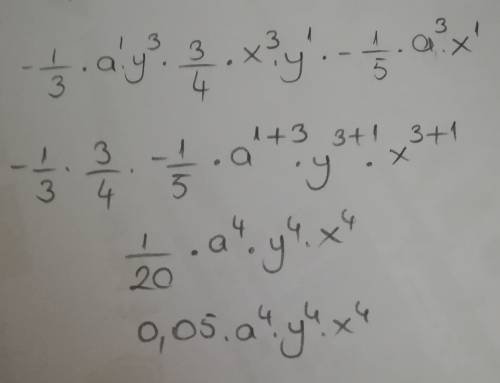 -1/3 · a¹·y³ · 3/4 · x³·y¹ · -1/5 · a³·x¹
-1/3 · 3/4 · -1/5 · a¹⁺³ · y³⁺¹ · x³⁺¹
1/20 · a⁴ · y⁴ · x⁴
0,05 · a⁴ · y⁴ · x⁴